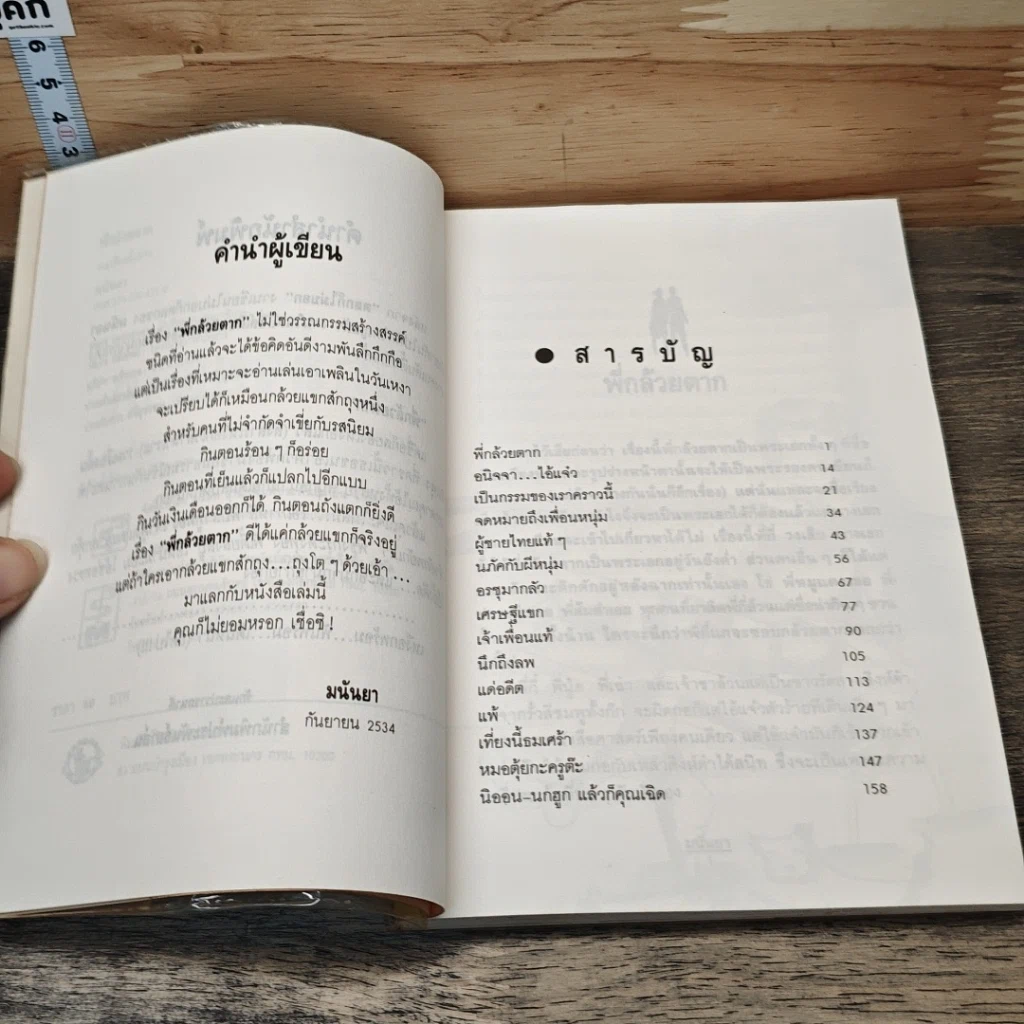 6
5
4
3
คำนำผู้เขียน
เรื่อง "พี่กล้วยตาก" ไม่ใช่วรรณกรรมสร้างสรรค์
ชนิดที่อ่านแล้วจะได้ข้อคิดอันดีงามพันลึกกึกกือ
แต่เป็นเรื่องที่เหมาะจะอ่านเล่นเอาเพลินในวันเหงา
จะเปรียบได้ก็เหมือนกล้วยแขกสักถุงหนึ่ง
สำหรับคนที่ไม่จำกัดจำเขี่ยกับรสนิยม
กินตอนร้อน ๆ ก็อร่อย
กินตอนที่เย็นแล้วก็แปลกไปอีกแบบ
กินวันเงินเดือนออกก็ได้ กินตอนถังแตกก็ยิ่งดี
เรื่อง "พี่กล้วยตาก" ดีได้แค่กล้วยแขกก็จริงอยู่
แต่ถ้าใครเอากล้วยแขกสักถุง...ถุงโต ๆ ด้วยเอ้า ...
มาแลกกับหนังสือเล่มนี้
คุณก็ไม่ยอมหรอก เชื่อซิ !
มนันยา
กันยายน 2534
● สารบัญ
พี่กล้วยตาก 1
อนิจจา...ไอ้แจ๋ว 14
เป็นกรรมของเราคราวนี้ 21
จดหมายถึงเพื่อนหนุ่ม 34
ผู้ชายไทยแท้ ๆ 43
นภัคกับผีหนุ่ม 56
อรชุมากลัว 67
เศรษฐีแขก 77
เจ้าเพื่อนแท้ 90
นึกถึงลพ 105
แด่อดีต 113
แพ้ 124
เที่ยงนี้ธมเศร้า 137
หมอตุ้ยกะครูต๊ะ 147
นิออน-นกฮูก แล้วก็คุณเฉิด 158